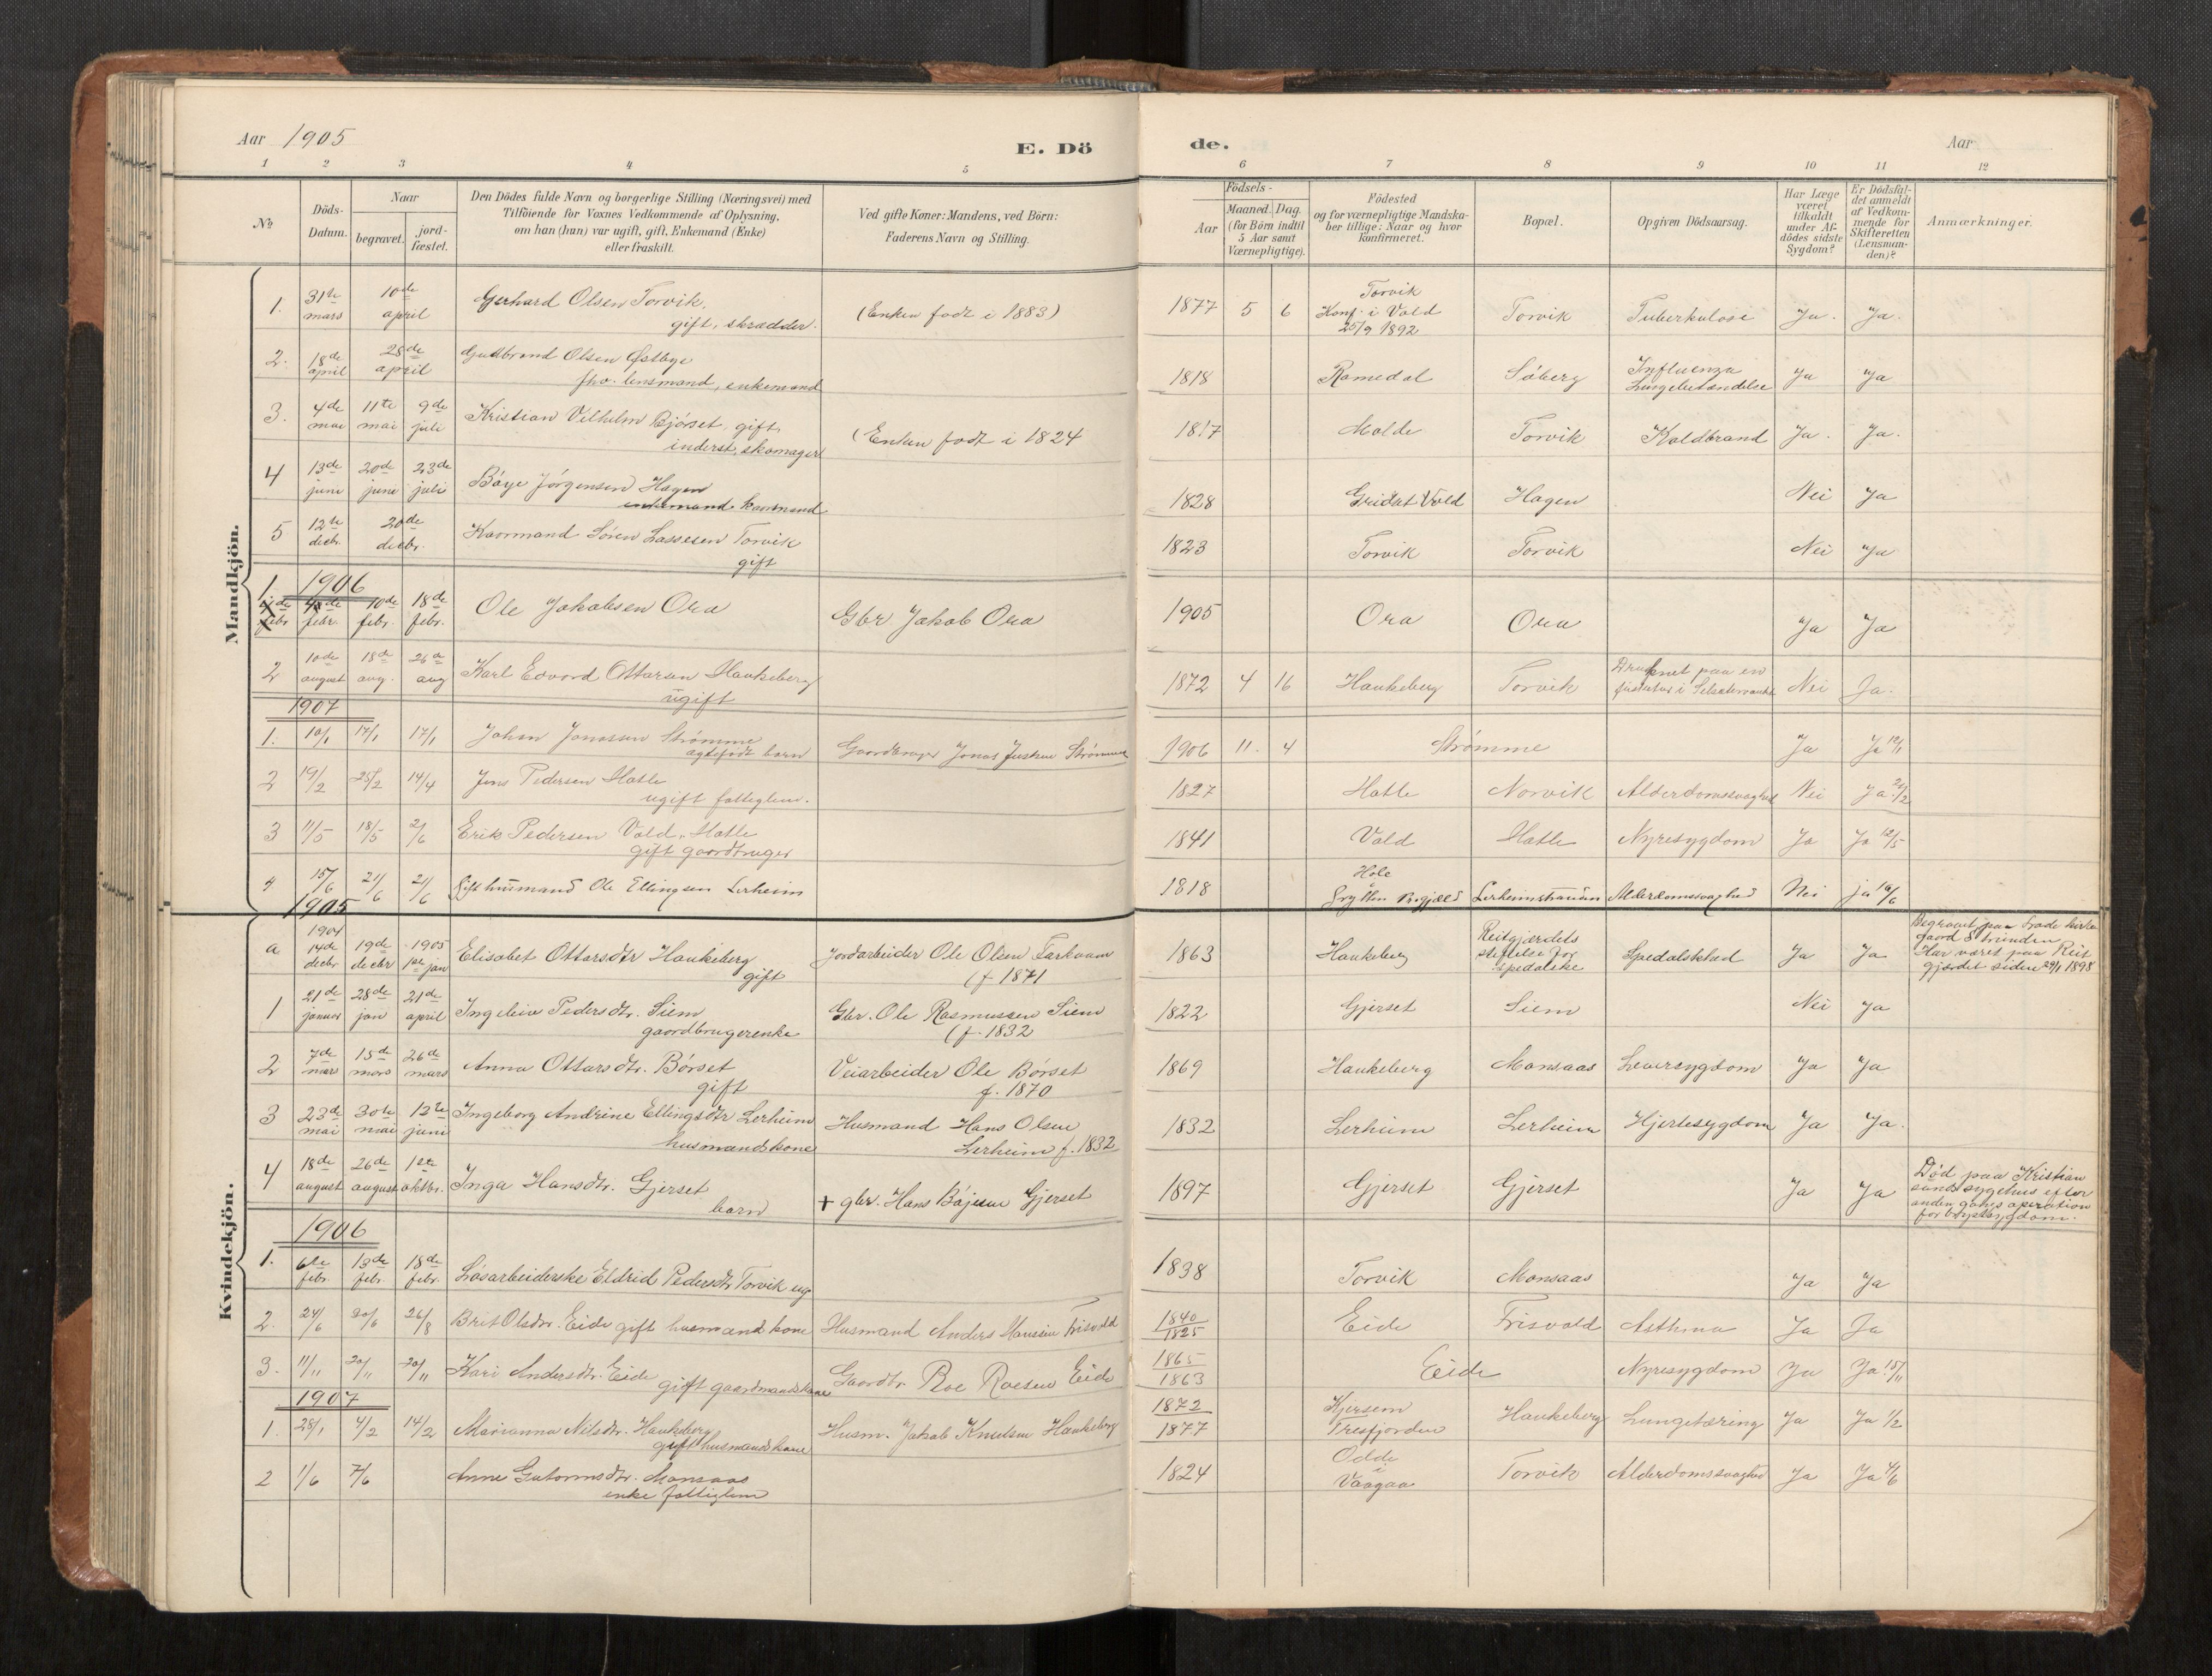 Aar 1905
E. Dö
de.
Aar
1 2 3 4 5 6 7 8 9 10 11 12
№
Döds-Datum.
Naar
begravet.
jord-fæstet.
Den Dödes fulde Navn og borgerlige Stilling (Næringsvei) med
Tilföiende for Voxnes Vedkommende af Oplysning,
om han (hun) var ugift, gift, Enkemand (Enke)
eller fraskilt.
Ved gifte Koner: Mandens, ved Börn:
Faderens Navn og Stilling.
Födsels-
Aar
Maaned. Dag.
(for Börn indtil
5 Aar samt
Værnepligtige).
Födested
og for værnepligtige Mandska-
ber tillige: Naar og hvor
konfirmeret.
Bopæl.
Opgiven Dödsaarsag.
Har Læge
været
tilkaldt
under Af-
dödes sidste
Sygdom?
Er Dödsfal-
det anmeldt
af Vedkom-
mende for
Skifteretten
(Lensman-
den)?
Anmærkninger.
Mandkjön.
1. 31te mars 10de april Gerhard Olsen Torvik, gift, skrædder. (Enken født i 1883) 1877 5 6 Torvik Konf. i Vold 25/9 1892 Torvik Tuberkulose Ja. Ja.
2. 18de april 28de april Gudbrand Olsen Østbye fhv. lensmand, enkemand 1818 Romedal Søberg Influenza Lungebetændelse Ja Ja
3. 4de mai 11te mai 9de juli Kristian Vilhelm Bjørset, gift, inderst, skomager (Enken født i 1824 1817 Molde Torvik Koldbrand Ja. Ja.
4 13de juni 20de juni 23de juli Bøye Jørgensen Hagen enkemand kaarmand 1828 Vold Hagen Nei Ja
5 12te decbr. 20de decbr. Kaarmand Søren Lassesen Torvik gift 1823 Torvik Torvik Nei Ja
1906
1. 4de febr. 10de febr. 18de febr. Ole Jakobsen Ora Gbr Jakob Ora 1905 Ora Ora Ja Ja
2 10de august 18de aug. 26de aug Karl Edvard Ottarsen Haukeberg ugift 1872 4 16 Haukeberg Torvik Druknet paa en i Nei Ja.
1907
1. 10/1 17/1 17/1 Johan Jonassen Strømme ægtefødt barn Gaardbruger Jonas Strømme 1906 11. 4 Strømme Ja Ja 12/1
2 19/2 25/2 14/4 Jens Pedersen Hatle ugift fattiglem. 1827 Hatle Norvik Alderdomssvaghed Nei Ja 20/2
3 11/5 18/5 2/6 Erik Pedersen Vold, Hatle gift gaardbruger 1841 Vold Hatle Nyresygdom Ja Ja 12/5
4 15/6 21/6 21/6 Gift husmand Ole Ellingsen Lerheim 1818 Hole i Grytten Prgjæld Lerheimstranden Alderdomssvaghed Nei ja 16/6
Kvindekjön.
1905
a 1904 14de decbr 19de decbr 1905 1ste jan Elisabet Ottarsdtr Haukeberg gift Jordarbeider Ole Olsen (f 1871 1863 Haukeberg Reitgjærdets stiftelse for spedalske Spedalskhed Ja Ja Begravet paa Lade kirke gaard Strinden Har været paa Reit gjærdet siden 29/1 1898
1 21de januar 28de jan 21de april Ingeleiv Pedersdtr. Siem gaardbrugerenke Gbr. Ole Rasmussen Siem (f. 1832 1822 Gjerset Siem Nei Ja
2 7de mars 15de mars 26de mars Anna Ottarsdtr. Børset gift Veiarbeider Ole Børset f. 1870 1869 Haukeberg Monsaas Leversygdom Ja Ja
3 23de mai 30te mai 12te juni Ingeborg Andrine Ellingsdtr Lerheim husmandskone Husmand Hans Olsen Lerheim f. 1832 1832 Lerheim Lerheim Hjertesygdom Ja Ja.
4 18de august 26de august 1ste oktbr. Inga Hansdtr. Gjerset barn + gbr. Hans Bøjesen Gjerset 1897 Gjerset Gjerset Ja Ja Død paa Kristian sunds sygehus efter anden gangs operation for brystsygdom.
1906
1. 6te febr. 13de febr. 18de febr. Løsarbeiderske Eldrid Pedersdtr Torvik ug 1838 Torvik Monsaas Ja Ja
2. 24/6 30/6 26/8 Brit Olsdtr. Eide gift husmandskone Husmand Anders Hanssen Frisvold 1840 1825 Eide Frisvold Asthma Ja Ja
3. 11/11 20/11 20/11 Kari Andersdtr. Eide gift gaardmandskone Gaardbr. Roe Roesen Eide 1865 1863 Eide Nyresygdom Ja Ja 15/11
1907
1. 28/1 4/2 14/2 Marianna Nilsdtr. Haukeberg gift husmandskone Husm. Jakob Knutsen Haukeberg 1872 1877 Kjersem Tresfjorden Haukeberg Lungetæring Ja Ja 1/2
2 1/6 7/6 Anne Gutormsdtr. Monsaas enke fattiglem 1824 Odde i Vaagaa Torvik Alderdomssvaghed Ja Ja 4/6